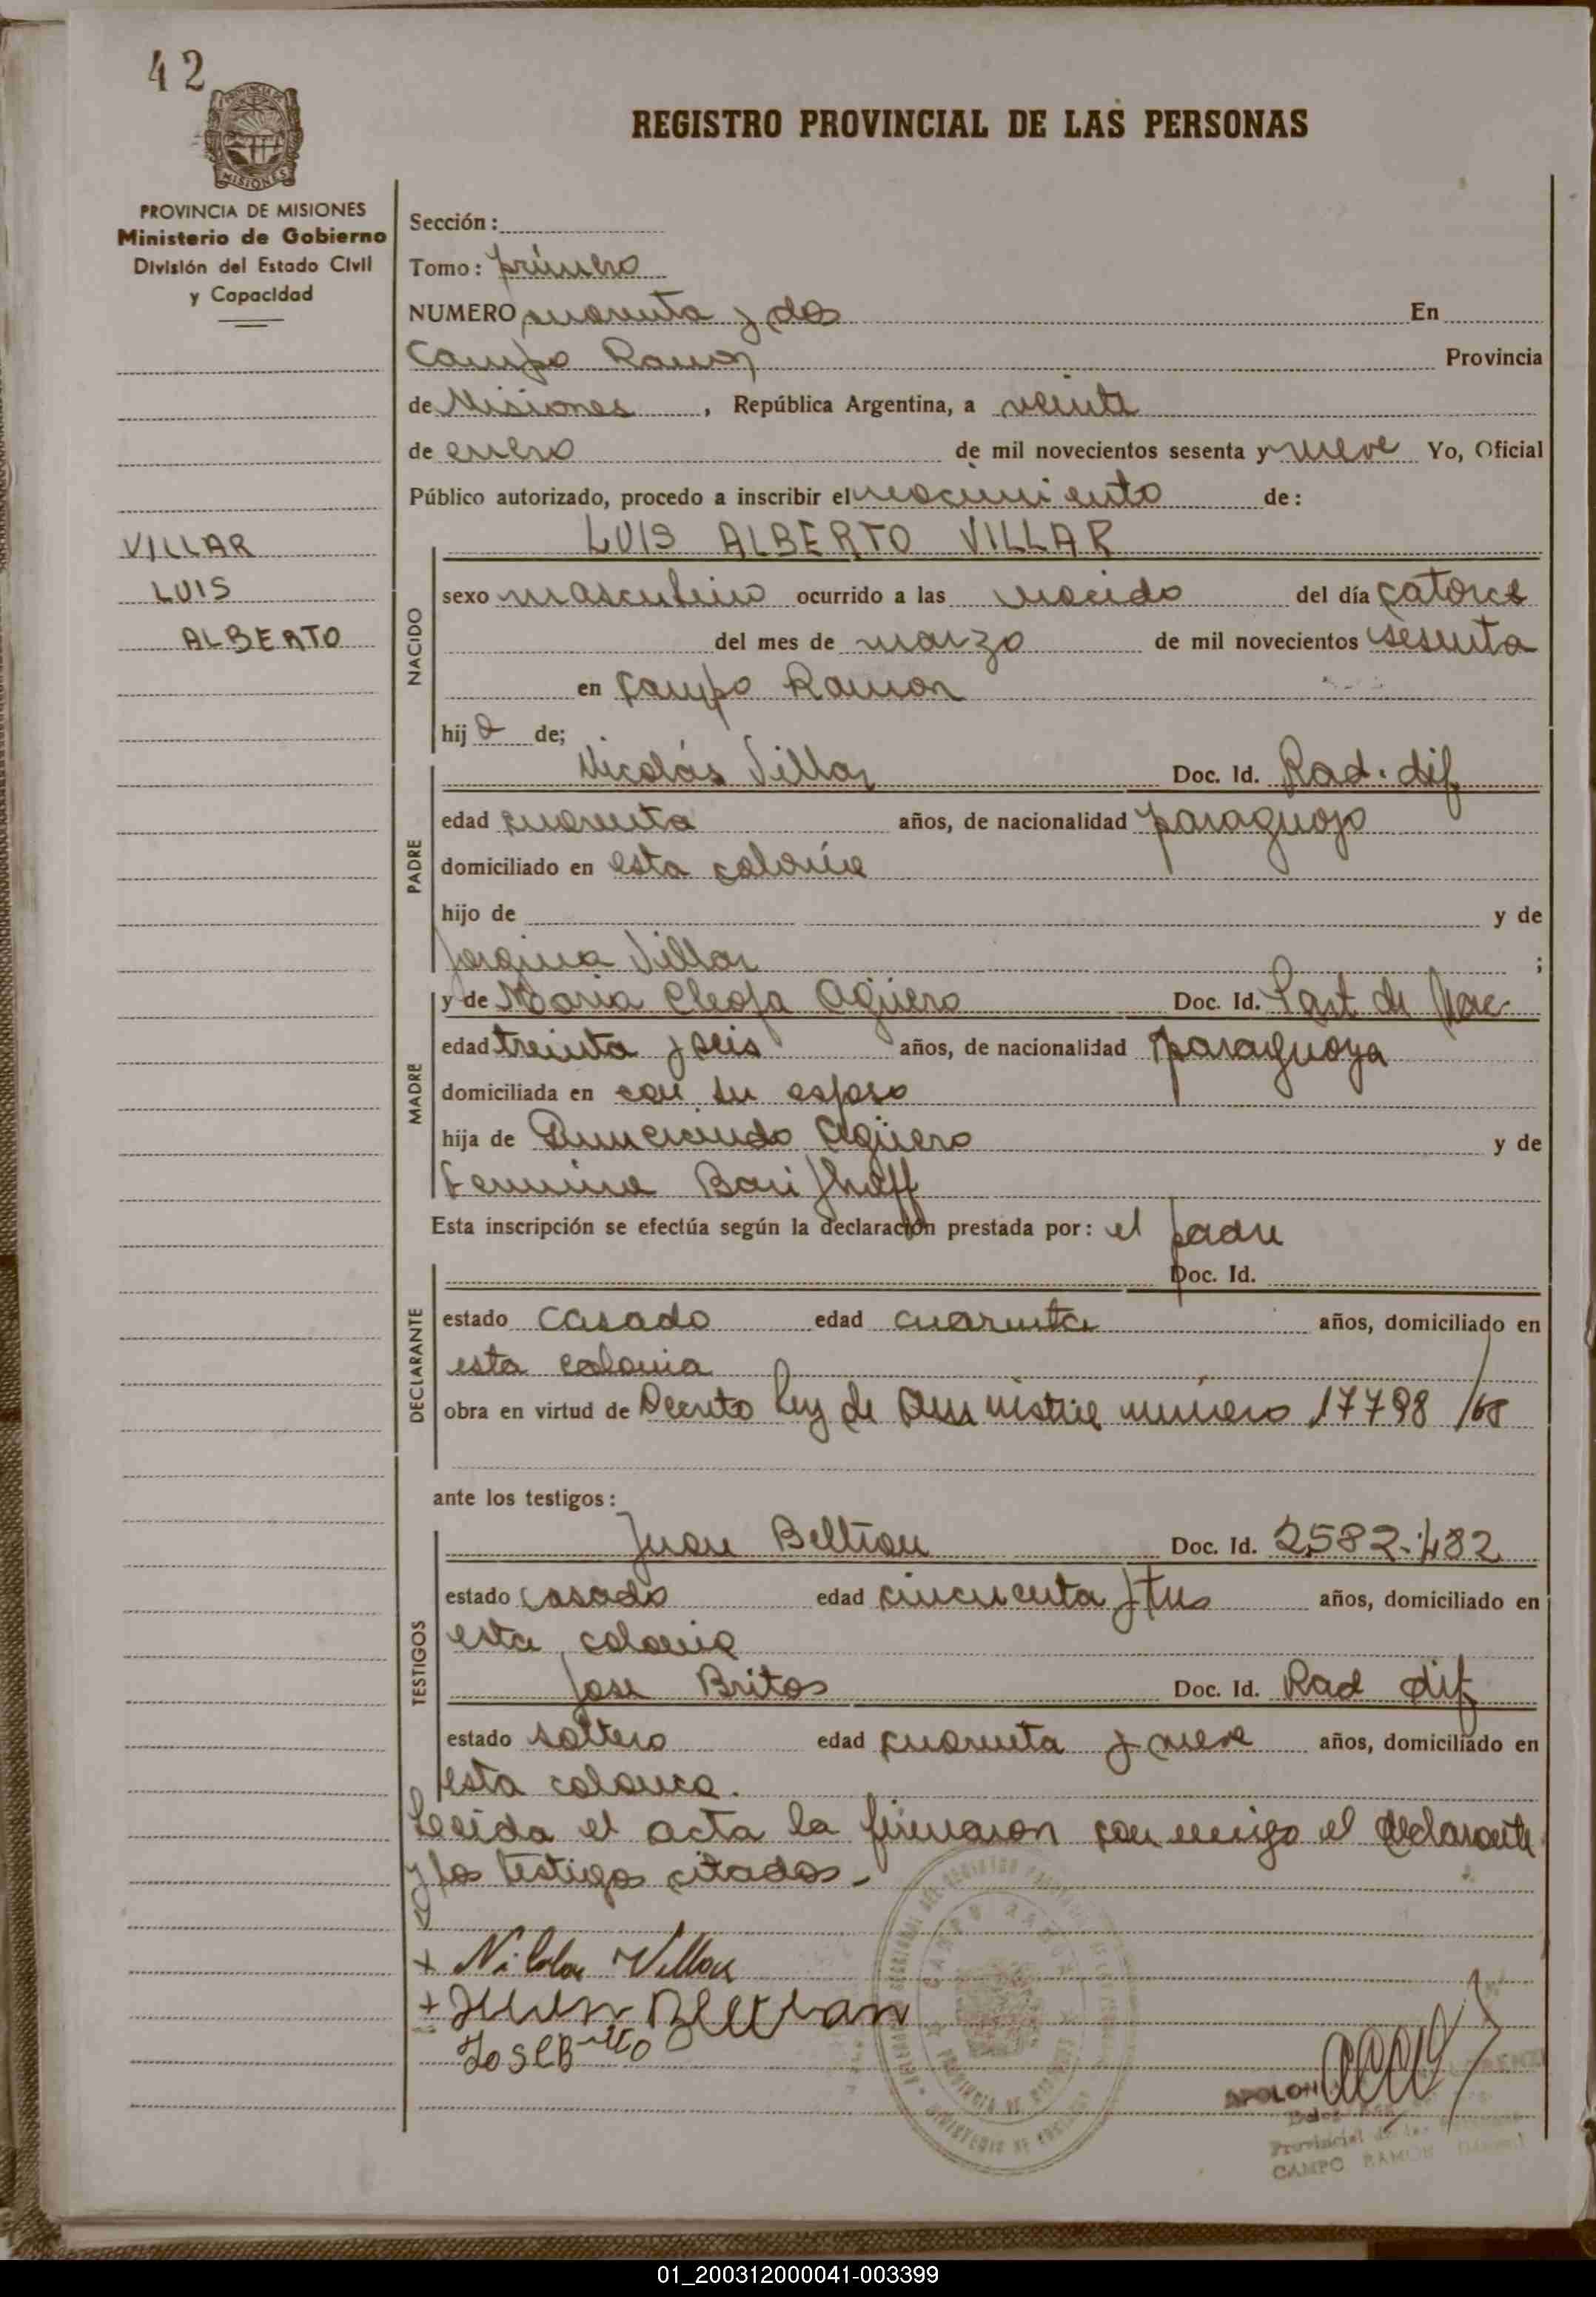 42
MISIONES
PROVINCIA DE MISIONES
Ministerio de Gobierno
División del Estado Civil
y Capacidad
VILLAR
LUIS
ALBERTO
REGISTRO PROVINCIAL DE LAS PERSONAS
Sección:
Tomo: primero
NUMERO cuarenta y dos En
Campo Ramon Provincia
de Misiones, República Argentina, a veinte
de enero de mil novecientos sesenta y nueve Yo, Oficial
Público autorizado, procedo a inscribir el nacimiento de:
LUIS ALBERTO VILLAR
NACIDO
sexo masculino ocurrido a las nacido del día catorce
del mes de marzo de mil novecientos sesenta
en Campo Ramon
hijo de;
PADRE
Nicolás Villar Doc. Id. Rad. dif
edad cuarenta años, de nacionalidad paraguayo
domiciliado en esta colonia
hijo de y de
Jorgina Villar ;
MADRE
y de Maria Cleofa Agüero Doc. Id. Part de Nac
edad treinta y seis años, de nacionalidad paraguaya
domiciliada en con su esposo
hija de Agüero y de
Esta inscripción se efectúa según la declaración prestada por: el padre
DECLARANTE
Doc. Id.
estado casado edad cuarenta años, domiciliado en
esta colonia
obra en virtud de Decreto Ley de Amnistia numero 17798/68
ante los testigos:
TESTIGOS
Juan Beltran Doc. Id. 2582.482
estado casado edad cincuenta y tres años, domiciliado en
esta colonia
Jose Britos Doc. Id. Rad dif
estado soltero edad cuarenta y nueve años, domiciliado en
esta colonia.
Leeida el acta la firmaron conmigo el declarante
y los testigos citados.-
+ Nicolas Villar
+ Juan Beltran
Jose Brito
CAMPO RAMON
PROVINCIA DE MISIONES
MINISTERIO DE GOBIERNO
Provincial de las
CAMPO RAMON
01_200312000041-003399